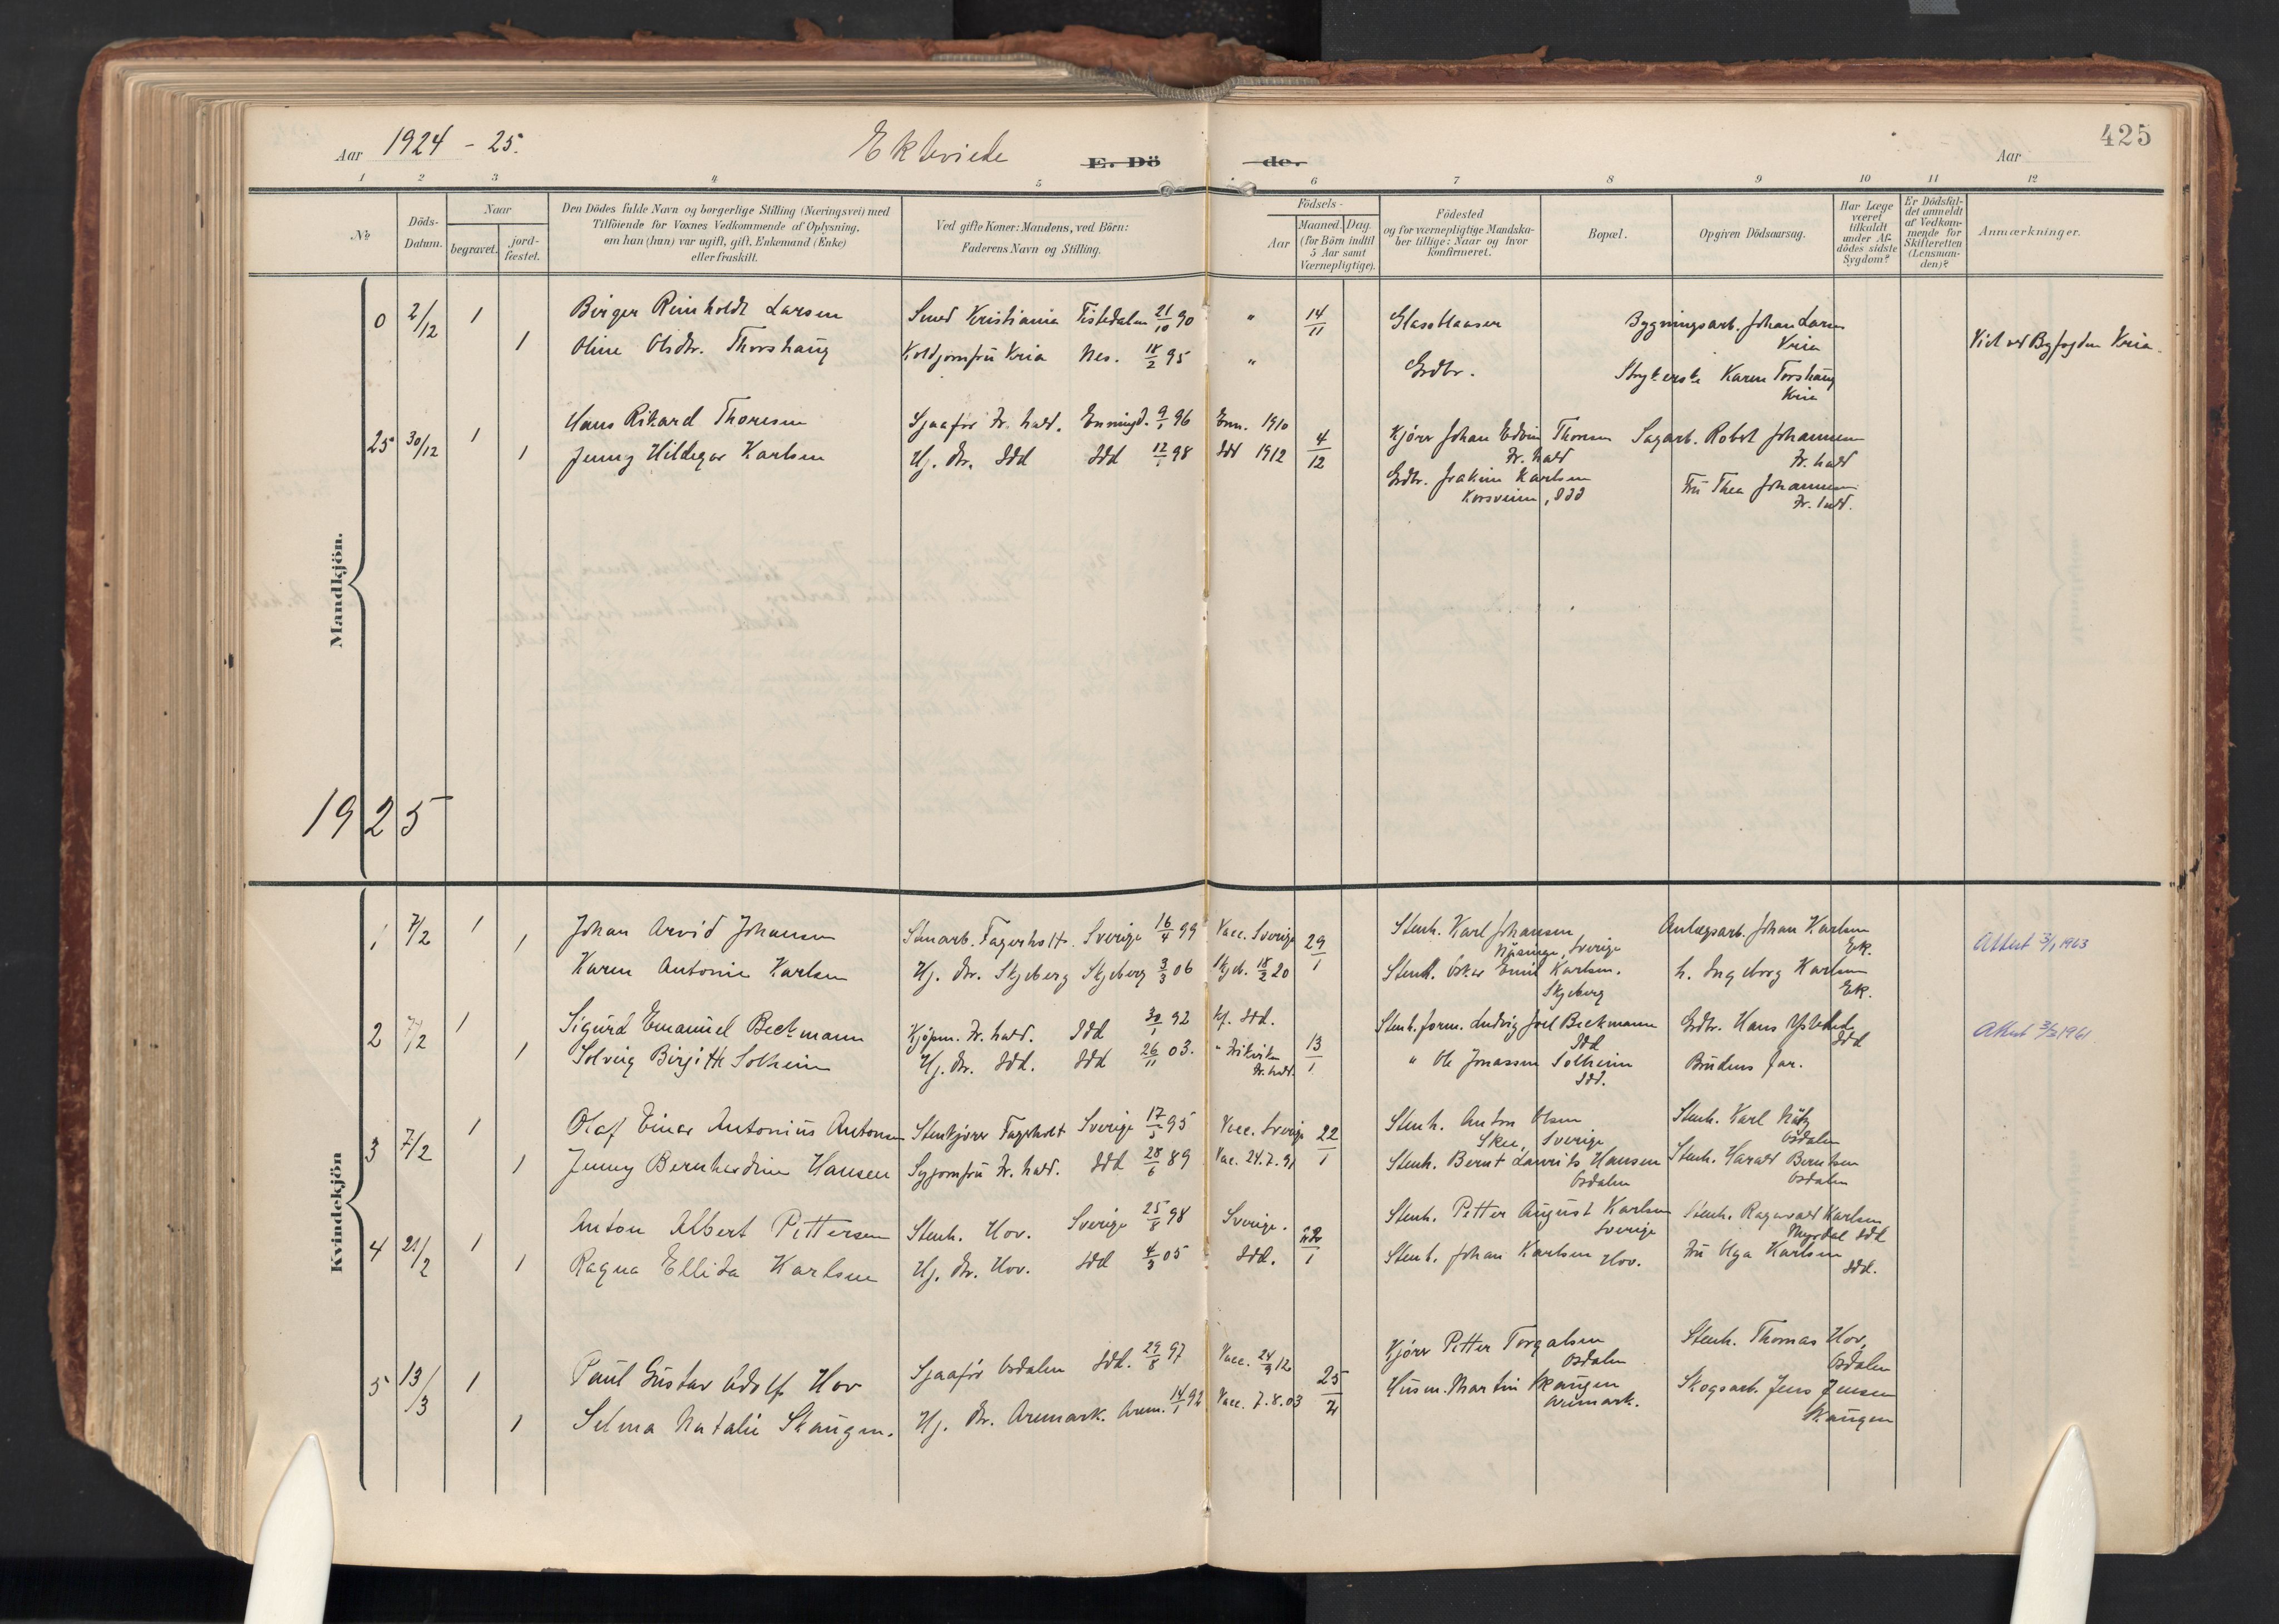 Aar 1924 - 25. Ektoviede E. Dö de. Aar 425
1 2 3 4 5 6 7 8 9 10 11 12
№
Döds-Datum.
Naar
begravet. jord-fæstet.
Den Dödes fulde Navn og borgerlige Stilling (Næringsvei) med
Tilföiende for Voxnes Vedkommende af Oplysning,
om han (hun) var ugift, gift, Enkemand (Enke)
eller fraskilt.
Ved gifte Koner: Mandens, ved Börn:
Faderens Navn og Stilling.
Födsels-
Aar Maaned. Dag.
(for Börn indtil
5 Aar samt
Værnepligtige).
Födested
og for værnepligtige Mandska-
ber tillige: Naar og hvor
konfirmeret.
Bopæl.
Opgiven Dödsaarsag.
Har Læge
været
tilkaldt
under Af-
dödes sidste
Sygdom?
Er Dödsfal-
det anmeldt
af Vedkom-
mende for
Skifteretten
(Lensman-
den)?
Anmærkninger.
Mandkjön.
0 2/12 1 Birger Reinholdt Larsen Smed Kristiania Tistedalen 21/10 90 " 14/11 Glass Bygningsarb. Johan Larsen
Kria
1 Oline Olsdtr. Thorshaug Koldjomfru Kria Nes. 18/2 95 " Grdbr. Strykerske Karen Torshaug
Kria
Viet ved Byfogden Kria.
25 30/12 1 Hans Rikard Thoresen Sjaafør Fr.hald. Enningd. 9/1 96 Enn. 1910 4/12 Kjører Johan Edvin Thoresen Sagarb. Robert Johannesen
Fr.hald Fr.hald
1 Jenny Hildegar Karlsen Hj. Dtr. Idd Idd 12/1 98 Idd 1912 Grdbr. Joakim Karlsen Fru Thea Johannesen
Korsveien, Idd Fr.hald.
1925
Kvindekjön
1 7/2 1 Johan Arvid Johansen Stenarb. Fagerholt. Sverige 16/4 99 Vacc. Sverige 29/1 Stenh. Karl Johansen Anlægsarb. Johan Karlsen
Näsinge, Sverige Ek.
1 Karen Antonie Karlsen Hj. Dtr. Skjeberg Skjeberg 3/3 06 Skjeb. 18/2 20 Stenh. Oskar Emil Karlsen. h. Ingeborg Karlsen
Skjeberg Ek.
Attest 3/1 1963
2 7/2 1 Sigurd Emanuel Beckmann Kjøpm. Fr.hald. Idd 30/1 92 Kf. Idd. 13/1 Stenh.form. Ludvig Joel Beckmann Grdbr. Hans
Idd Idd
1 Solveig Birgitte Solheim Hj. Dtr. Idd. Idd 26/11 03. " Fr.hald. " Ole Jonassen Solheim Brudens far.
Idd.
Attest 3/2 1961
3 7/2 1 Olaf Einar Antonius Antonsen Stenkjører Fagerholt Sverige 17/5 95 Vacc. Sverige 22/1 Stenh. Anton Olsen Stenh. Karl
Skee, Sverige Osdalen
1 Jenny Bernhardine Hansen Syjomfru Fr.hald. Idd 28/6 89 Vac. 24.7.91 Stenh. Bernt Laurits Hansen Stenh. Harald Berntsen
Osdalen Osdalen
4 21/2 1 Anton Albert Pettersen Stenh. Hov. Sverige 25/8 98 Sverige. Stenh. Petter August Karlsen Stenh. Ragnvald Karlsen
Sverige Myrdal Idd
1 Ragna Ellida Karlsen Hj. Dtr. Hov. Idd 4/3 05 Idd. Stenh. Johan Karlsen Hov. Fru Olga Karlsen
Idd.
5 13/3 1 Paul Gustav Adolf Hov Sjaafør Osdalen Idd. 29/8 97 Vacc. 24/9 12 25/2 Kjører Petter Torgalsen Stenh. Thomas Hov,
Osdalen Osdalen
1 Selma Natalie Skaugen. Hj. Dtr. Aremark. Arem. 14/1 92 Vacc. 7.8.03 Husm. Martin Skaugen Skogsarb. Jens Jensen
Aremark. Skaugen